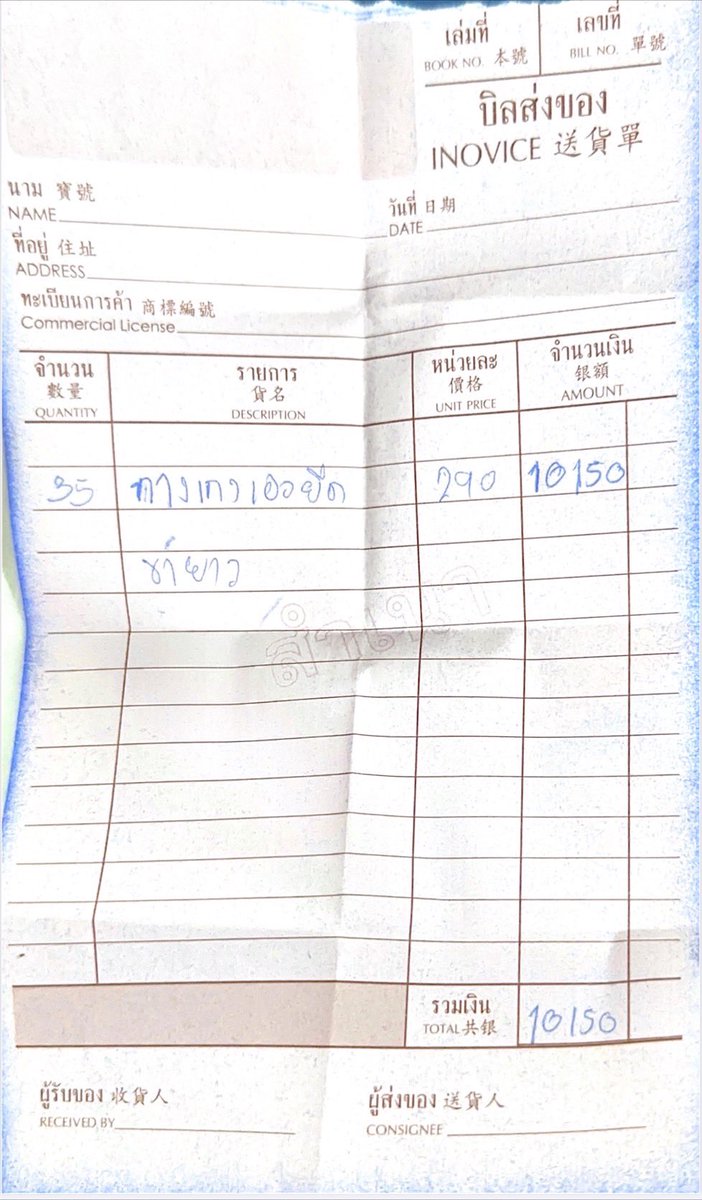 เล่มที่ เลขที่
BOOK NO. 本號 BILL NO. 單號
บิลส่งของ
INOVICE 送貨單
นาม 寶號
NAME
วันที่ 日期
DATE
ที่อยู่ 住址
ADDRESS
ทะเบียนการค้า 商標編號
Commercial License
จำนวน รายการ หน่วยละ จำนวนเงิน
數量 貨名 價格 銀額
QUANTITY DESCRIPTION UNIT PRICE AMOUNT
35 กางเกงเอวยืด 290 10150
ขายาว
สำเนา
รวมเงิน
TOTAL 共銀 10150
ผู้รับของ 收貨人 ผู้ส่งของ 送貨人
RECEIVED BY CONSIGNEE